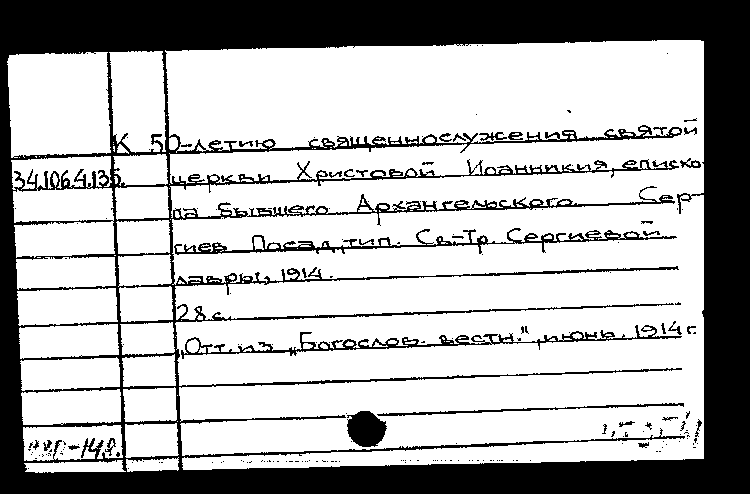 К 50-летию священнослужения святой
34.106.4.135. церкви Христовой Иоанникия, еписко-
па бывшего Архангельского. Сер-
гиев Посад, тип. Св.-Тр. Сергиевой
лавры, 1914.
28 с.
„Отт. из „Богослов. вестн.", июнь. 1914 г.